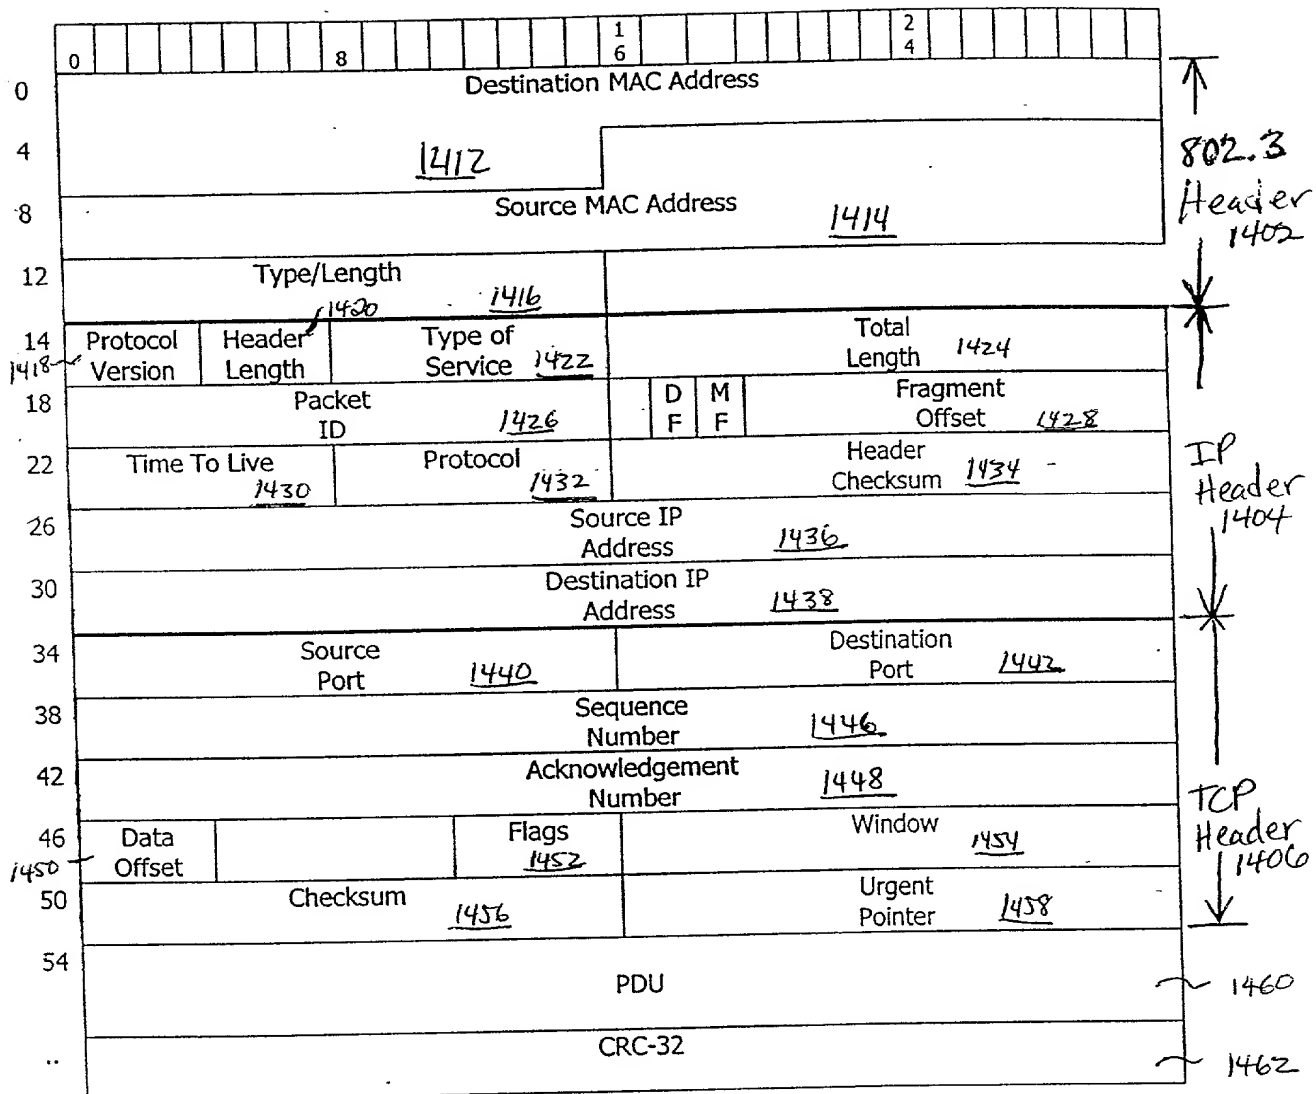 0 8 16 24
0 Destination MAC Address
4 1412
802.3 Header 1402
8 Source MAC Address 1414
12 Type/Length 1416
14 Protocol Version 1418 Header Length 1420 Type of Service 1422 Total Length 1424
18 Packet ID 1426 DF MF Fragment Offset 1428
22 Time To Live 1430 Protocol 1432 Header Checksum 1434
IP Header 1404
26 Source IP Address 1436
30 Destination IP Address 1438
34 Source Port 1440 Destination Port 1442
38 Sequence Number 1446
42 Acknowledgement Number 1448
TCP Header 1406
46 Data Offset 1450 Flags 1452 Window 1454
50 Checksum 1456 Urgent Pointer 1458
54 PDU 1460
.. CRC-32 1462